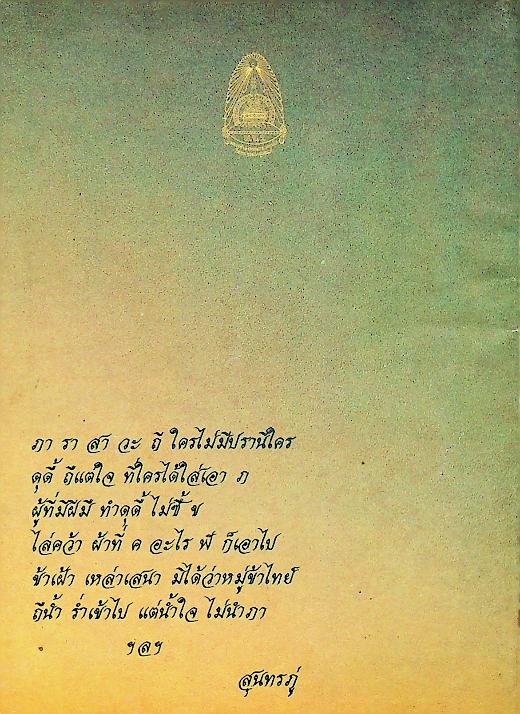 ภา รา สา วะ ถี ใครไม่มีปรานีใคร
ดุดื้ ถือแต่ใจ ที่ใครได้ใส่เอา ภ
ผู้ที่มีฝีมื ทำดุดื้ ไม่ซื้ ข
ไล่คว้า ผ้าที่ ค อะไร ฬ ก็เอาไป
ข้าเฝ้า เหล่าเสนา มิได้ว่าหมู่ข้าไทย์
ถือน้ำ ร่ำเข้าไป แต่น้ำใจ ไม่นำภา
ฯลฯ
สุนทรภู่